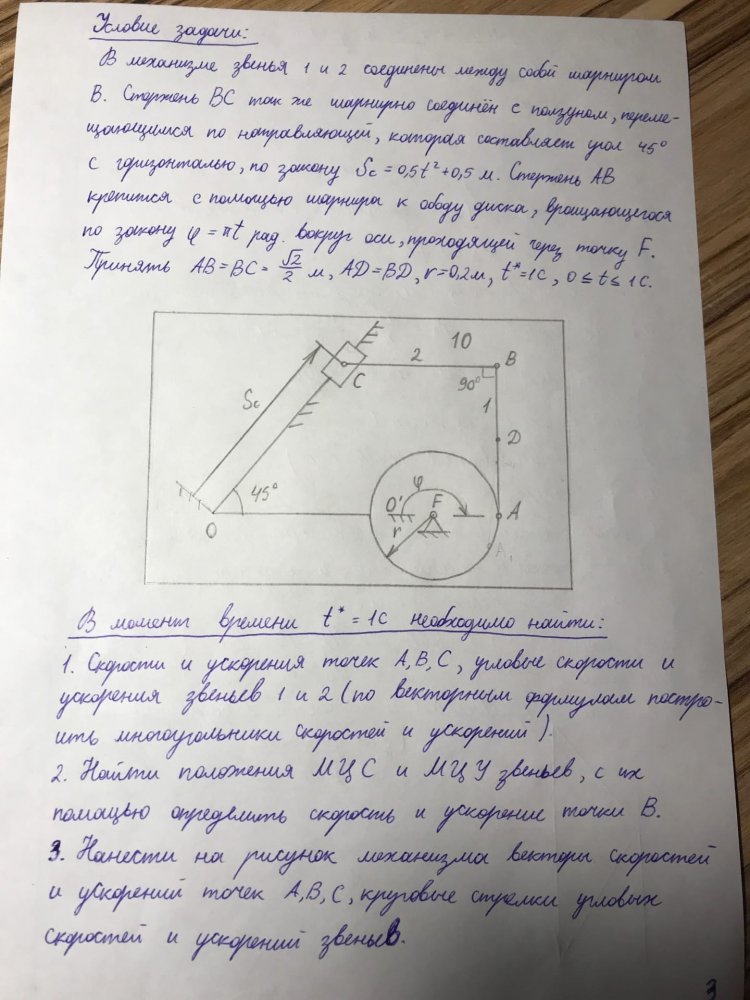 Условие задачи:
В механизме звенья 1 и 2 соединены между собой шарниром
В. Стержень ВС так же шарнирно соединён с ползуном, переме-
щающимся по направляющей, которая составляет угол 45°
с горизонталью, по закону Sc = 0,5t² + 0,5 м. Стержень АВ
крепится с помощью шарнира к ободу диска, вращающегося
по закону φ = πt рад. вокруг оси, проходящей через точку F.
Принять АВ = ВС = √2/2 м, AD = BD, r = 0,2 м, t* = 1c, 0 ≤ t ≤ 1 с.
10
2
B
C
90°
Sc
1
D
φ
45°
O'
F
A
O
r
A₁
В момент времени t* = 1с необходимо найти:
1. Скорости и ускорения точек А, В, С, угловые скорости и
ускорения звеньев 1 и 2 (по векторным формулам постро-
ить многоугольники скоростей и ускорений).
2. Найти положения МЦС и МЦУ звеньев, с их
помощью определить скорость и ускорение точки В.
3. Нанести на рисунок механизма векторы скоростей
и ускорений точек А, В, С, круговые стрелки угловых
скоростей и ускорений звеньев.
3